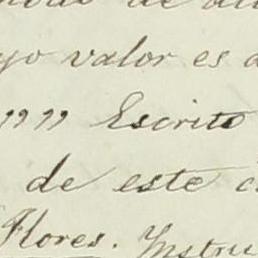 de
yo valor es
"" "" Escrito
de este
Flores. Instru